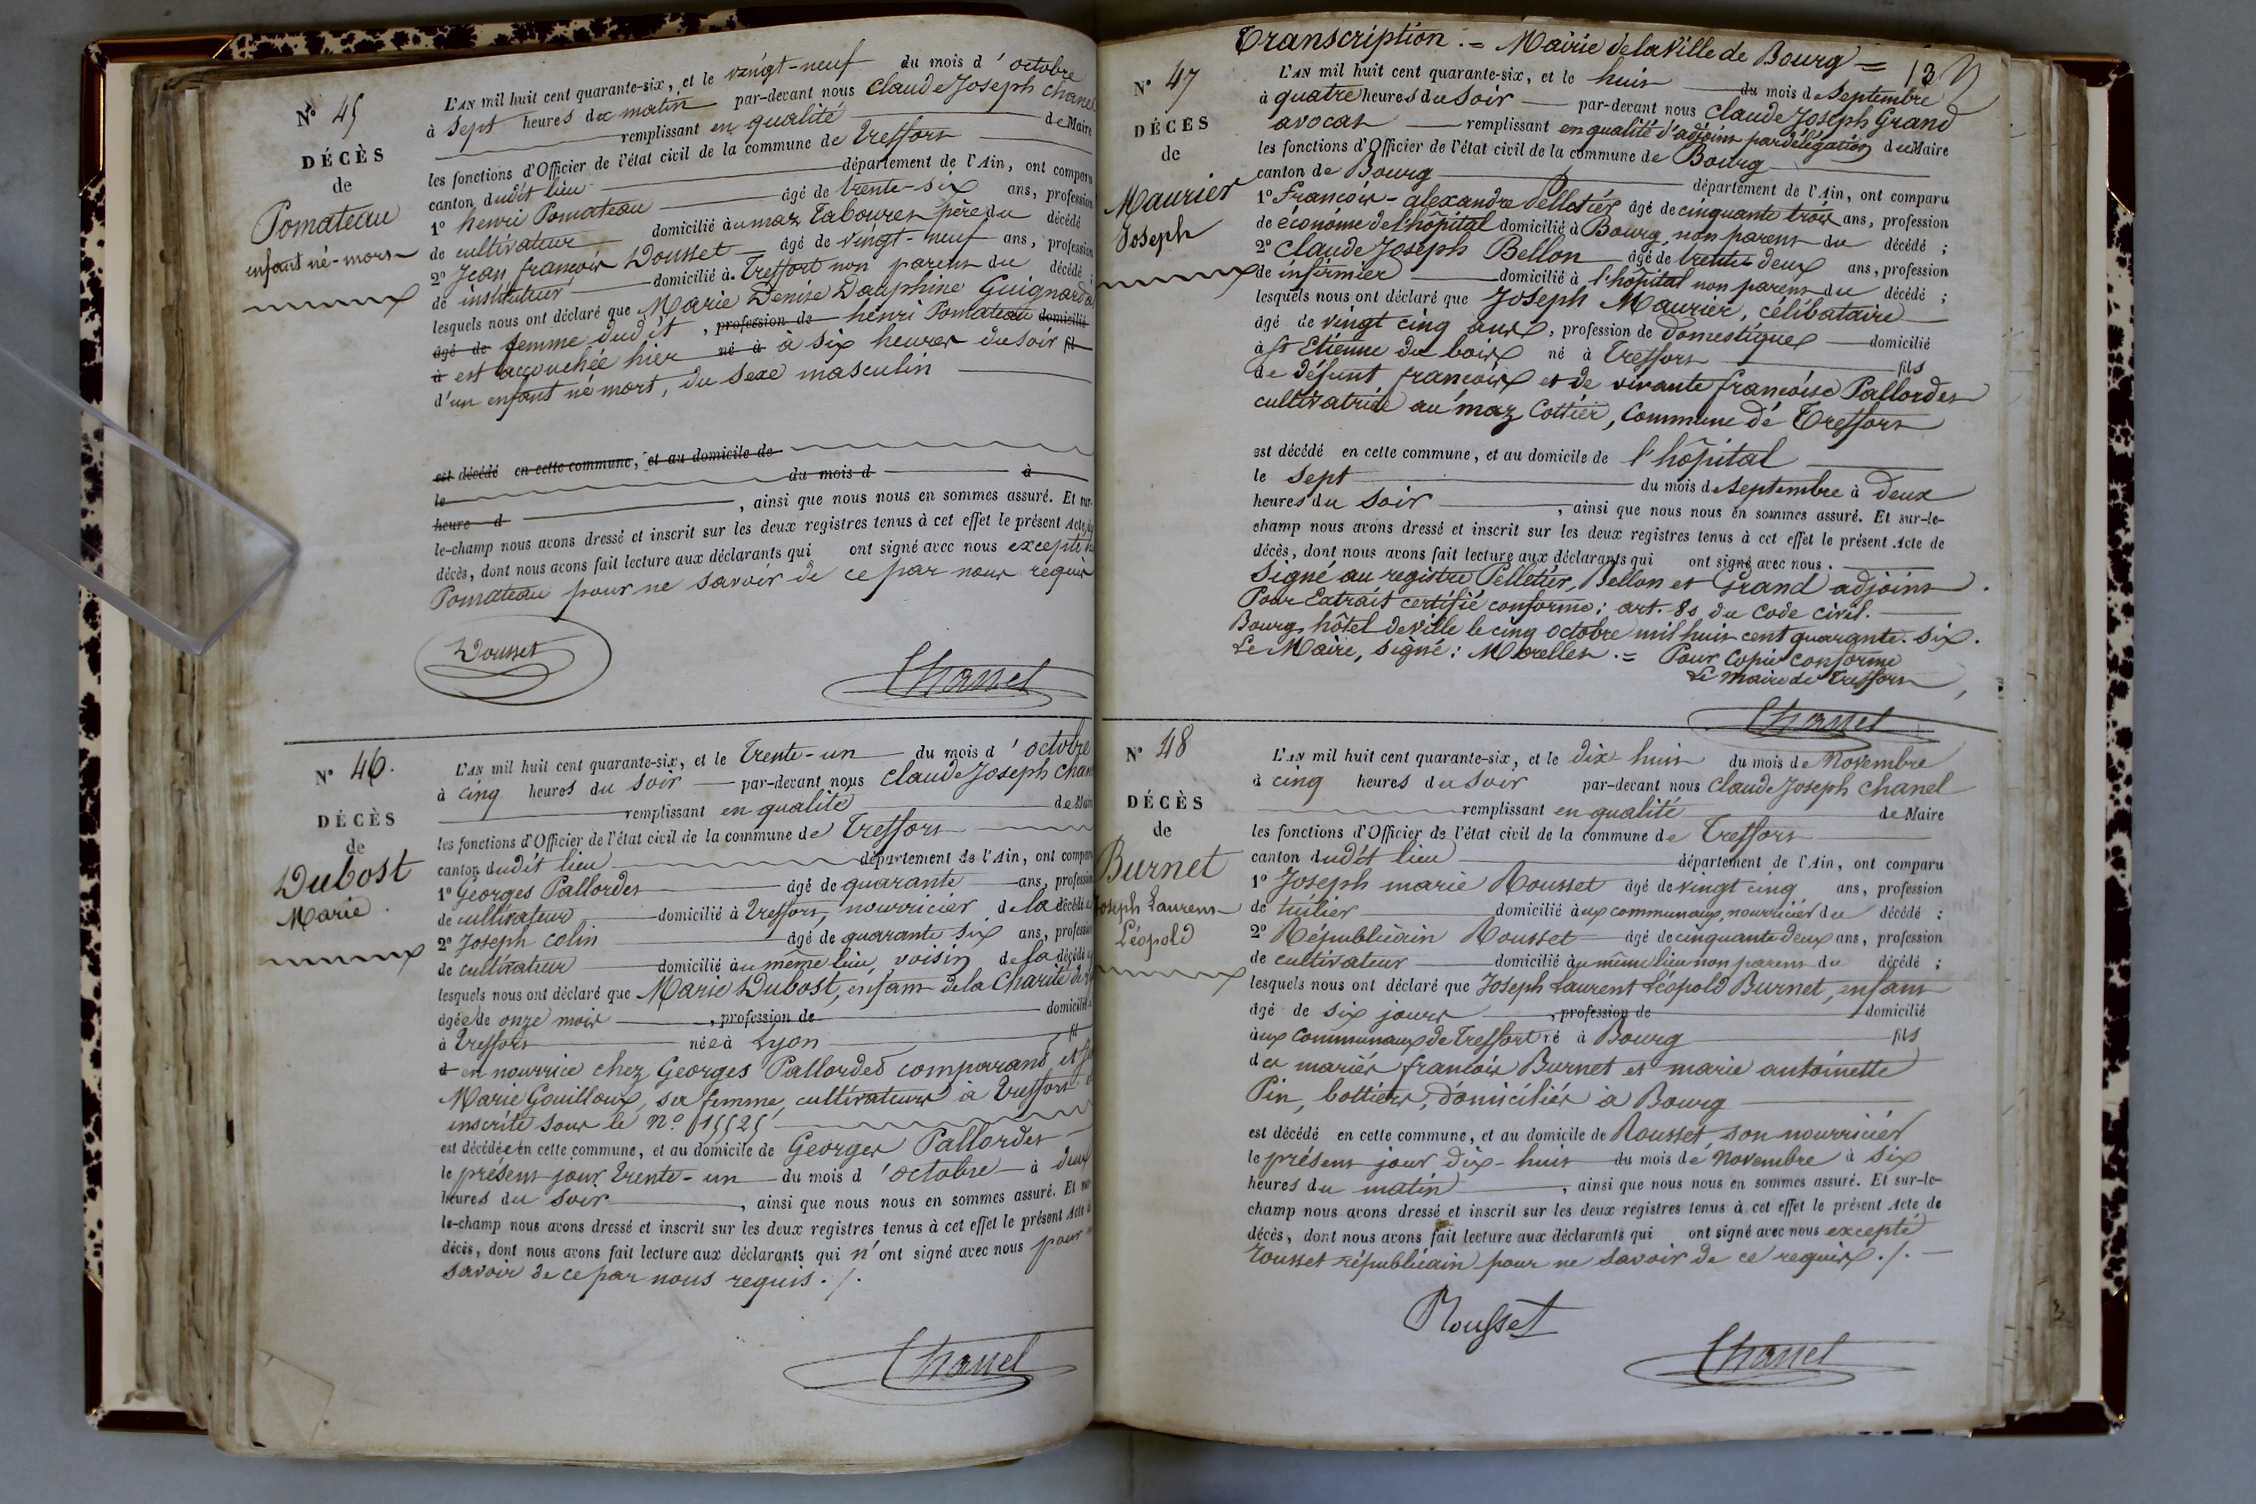 N° 45
DÉCÈS
de
Pomateau
enfant né-mort
L'AN mil huit cent quarante-six, et le vingt-neuf du mois d'octobre
à sept heures du matin par-devant nous Claude Joseph Chanel
remplissant en qualité de Maire
les fonctions d'Officier de l'état civil de la commune de Treffort
canton dudit lieu département de l'Ain, ont comparu
1° henri Pomateau âgé de trente-six ans, profession
de cultivateur domicilié au maz Tabouret père du décédé
2° Jean françois Dousset âgé de vingt-neuf ans, profession
de instituteur domicilié à Treffort non parent du décédé ;
lesquels nous ont déclaré que Marie Denise Dauphine Guignard
âgé de femme dudit, profession de henri Pomateau domicilié
à est accouchée hier né à à six heures du soir fil
d'un enfant né mort, du sexe masculin
est décédé en cette commune, et au domicile de
le du mois d à
heure d , ainsi que nous nous en sommes assuré. Et sur-
le-champ nous avons dressé et inscrit sur les deux registres tenus à cet effet le présent Acte de
décès, dont nous avons fait lecture aux déclarants qui ont signé avec nous excepté
Pomateau pour ne savoir de ce par nous requis
Dousset
Chanel
N° 46.
DÉCÈS
de
Dubost
Marie
L'AN mil huit cent quarante-six, et le trente-un du mois d'octobre
à cinq heures du soir par-devant nous Claude Joseph Chanel
remplissant en qualité de Maire
les fonctions d'Officier de l'état civil de la commune de Treffort
canton dudit lieu département de l'Ain, ont comparu
1° Georges Pallordet âgé de quarante ans, profession
de cultivateur domicilié à Treffort, nourricier de la décédée
2° Joseph Colin âgé de quarante six ans, profession
de cultivateur domicilié au même lieu, voisin de la décédée
lesquels nous ont déclaré que Marie Dubost, enfant de la Charité de
âgée de onze mois, profession de domicilié
à Treffort née à Lyon fil
d en nourrice chez Georges Pallordet comparant et
Marie Gouilloux, sa femme, cultivateurs à Treffort
inscrite sous le N° 15525
est décédée en cette commune, et au domicile de Georges Pallordet
le présent jour trente-un du mois d'octobre à deux
heures du soir, ainsi que nous nous en sommes assuré. Et sur-
le-champ nous avons dressé et inscrit sur les deux registres tenus à cet effet le présent Acte de
décès, dont nous avons fait lecture aux déclarants qui n'ont signé avec nous pour ne
savoir de ce par nous requis ./.
Chanel
Transcription . = Mairie de la Ville de Bourg =
N° 47
DÉCÈS
de
Maurier
Joseph
L'AN mil huit cent quarante-six, et le huit du mois de Septembre
à quatre heures du Soir par-devant nous Claude Joseph Grand
avocat remplissant en qualité d'adjoint par délégation de Maire
les fonctions d'Officier de l'état civil de la commune de Bourg
canton de Bourg département de l'Ain, ont comparu
1° François-alexandre Pelletier âgé de cinquante trois ans, profession
de économe de l'hôpital domicilié à Bourg, non parent du décédé ;
2° Claude Joseph Bellon âgé de trente-deux ans, profession
de infirmier domicilié à l'hôpital non parent du décédé ;
lesquels nous ont déclaré que Joseph Maurier, célibataire
âgé de vingt cinq ans, profession de domestique domicilié
à St Etienne du bois né à Treffort fils
de défunt françois et de vivante françoise Pallordet
cultivatrice au maz Cottier, Commune de Treffort
est décédé en cette commune, et au domicile de l'hôpital
le sept du mois de Septembre à deux
heures du Soir, ainsi que nous nous en sommes assuré. Et sur-le-
champ nous avons dressé et inscrit sur les deux registres tenus à cet effet le présent Acte de
décès, dont nous avons fait lecture aux déclarants qui ont signé avec nous.
Signé au registre Pelletier, Bellon et Grand adjoint
Pour Extrait certifié conforme : art. 80 du Code civil.
Bourg, hôtel de ville le cinq octobre mil huit cent quarante-six.
Le Maire, signé : Morellet . = Pour Copie Conforme
Le maire de Treffort
Chanel
N° 48
DÉCÈS
de
Burnet
Joseph Laurent
Léopold
L'AN mil huit cent quarante-six, et le dix-huit du mois de Novembre
à cinq heures du soir par-devant nous Claude Joseph Chanel
remplissant en qualité de Maire
les fonctions d'Officier de l'état civil de la commune de Treffort
canton dudit lieu département de l'Ain, ont comparu
1° Joseph marie Rousset âgé de vingt cinq ans, profession
de tuilier domicilié aux communaux, nourricier du décédé ;
2° Républicain Rousset âgé de cinquante deux ans, profession
de cultivateur domicilié au même lieu non parent du décédé ;
lesquels nous ont déclaré que Joseph Laurent Léopold Burnet, enfant
âgé de six jours, profession de domicilié
aux communaux de Treffort né à Bourg fils
des mariés françois Burnet et marie antoinette
Pin, bottiers, domiciliés à Bourg
est décédé en cette commune, et au domicile de Rousset, son nourricier
le présent jour dix-huit du mois de Novembre à six
heures du matin, ainsi que nous nous en sommes assuré. Et sur-le-
champ nous avons dressé et inscrit sur les deux registres tenus à cet effet le présent Acte de
décès, dont nous avons fait lecture aux déclarants qui ont signé avec nous excepté
rousset républicain pour ne savoir de ce requis ./.
Rousset
Chanel